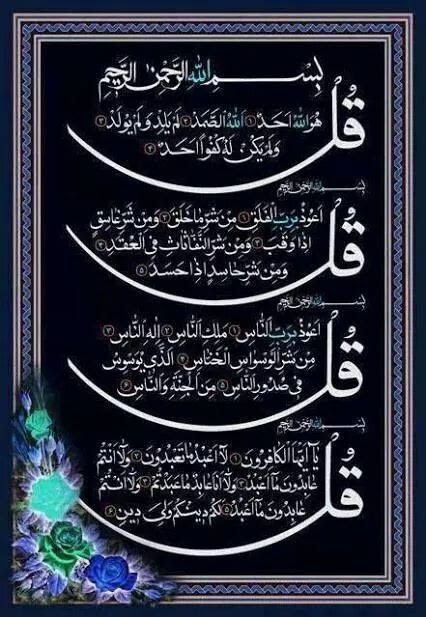 بِسْمِ اللهِ الرَّحْمٰنِ الرَّحِيْمِ
قُلْ
هُوَ اللهُ اَحَدٌ ١ اَللهُ الصَّمَدُ ٢ لَمْ يَلِدْ وَلَمْ يُولَدْ ٣
وَلَمْ يَكُنْ لَهُ كُفُوًا اَحَدٌ ٤
بِسْمِ اللهِ الرَّحْمٰنِ الرَّحِيْمِ
قُلْ
اَعُوْذُ بِرَبِّ الْفَلَقِ ١ مِنْ شَرِّ مَا خَلَقَ ٢ وَمِنْ شَرِّ غَاسِقٍ
اِذَا وَقَبَ ٣ وَمِنْ شَرِّ النَّفَّاثَاتِ فِي الْعُقَدِ ٤
وَمِنْ شَرِّ حَاسِدٍ اِذَا حَسَدَ ٥
بِسْمِ اللهِ الرَّحْمٰنِ الرَّحِيْمِ
قُلْ
اَعُوْذُ بِرَبِّ النَّاسِ ١ مَلِكِ النَّاسِ ٢ اِلٰهِ النَّاسِ ٣
مِنْ شَرِّ الْوَسْوَاسِ الْخَنَّاسِ ٤ اَلَّذِي يُوَسْوِسُ
فِي صُدُوْرِ النَّاسِ ٥ مِنَ الْجِنَّةِ وَالنَّاسِ ٦
بِسْمِ اللهِ الرَّحْمٰنِ الرَّحِيْمِ
قُلْ
يَا اَيُّهَا الْكَافِرُوْنَ ١ لَا اَعْبُدُ مَا تَعْبُدُوْنَ ٢ وَلَا اَنْتُمْ
عَابِدُوْنَ مَا اَعْبُدُ ٣ وَلَا اَنَا عَابِدٌ مَا عَبَدْتُمْ ٤ وَلَا اَنْتُمْ
عَابِدُوْنَ مَا اَعْبُدُ ٥ لَكُمْ دِيْنُكُمْ وَلِيَ دِيْنِ ٦